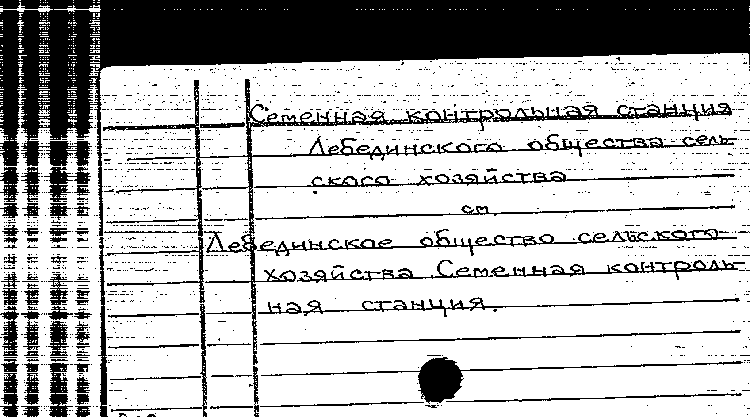 Семенная контрольная станция
Лебединского общества сель
ского хозяйства
см.
Лебединское общество сельского
хозяйства. Семенная контроль
ная станция.